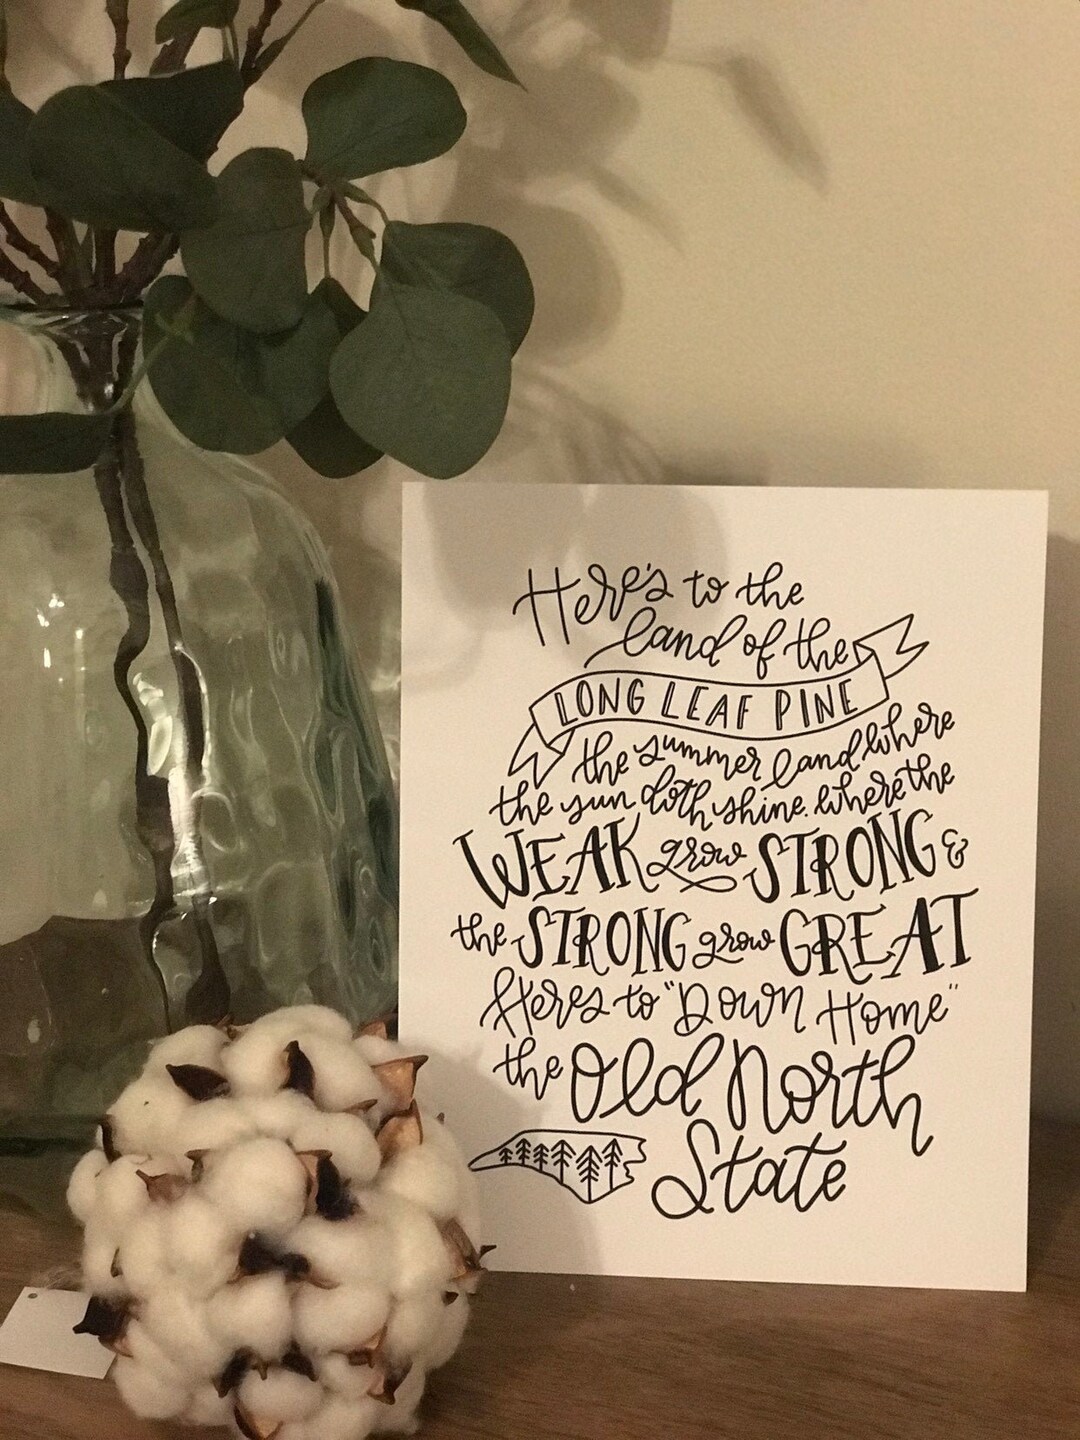 Here's to the
land of the
LONG LEAF PINE
the summer land where
the sun doth shine. where the
WEAK grow STRONG &
the STRONG grow GREAT
Heres to "Down Home"
the Old North
State